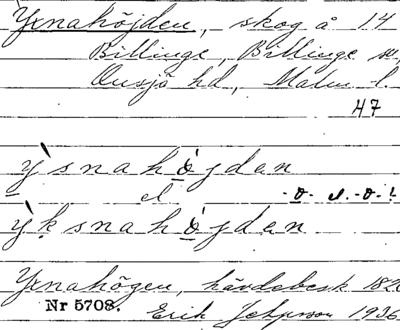 Yxnahöjden, skog å 14
Billinge, Billinge sn,
Onsjö hd, Malm. l.
47
ỳsnahòjdan
el
ỳksnahòjdan
Yxnahögen, härdebesk 182
Nr 5708. Erik Jehpsson 1936